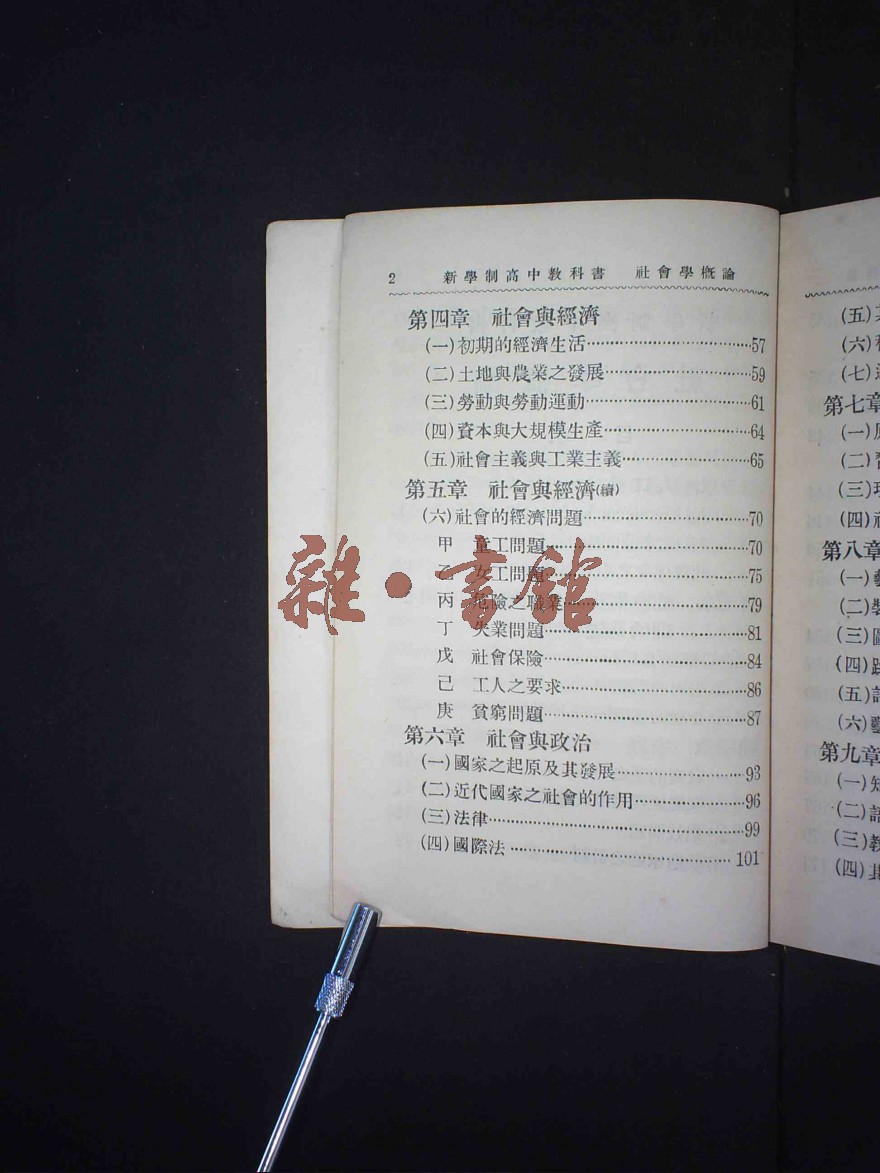 2 新學制高中教科書 社會學概論
第四章 社會與經濟
(一)初期的經濟生活……57
(二)土地與農業之發展……59
(三)勞動與勞動運動……61
(四)資本與大規模生產……64
(五)社會主義與工業主義……65
第五章 社會與經濟(續)
(六)社會的經濟問題……70
甲 童工問題……70
乙 女工問題……75
丙 危險之職業……79
丁 失業問題……81
戊 社會保險……84
己 工人之要求……86
庚 貧窮問題……87
第六章 社會與政治
(一)國家之起原及其發展……93
(二)近代國家之社會的作用……96
(三)法律……99
(四)國際法……101
雜·書館
(五)
(六)
(七)
第七章
(一)
(二)
(三)
(四)
第八章
(一)
(二)
(三)
(四)
(五)
(六)
第九章
(一)
(二)
(三)
(四)